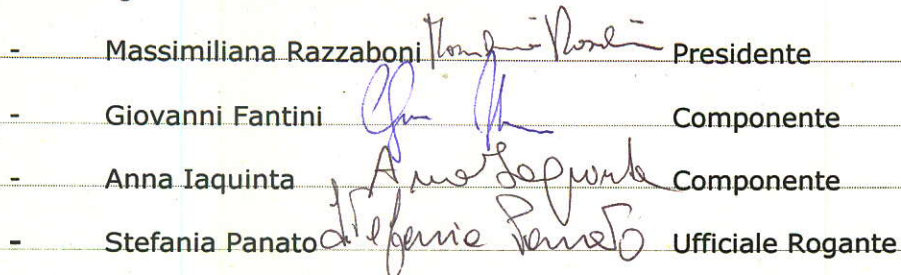 - Massimiliana Razzaboni Presidente
- Giovanni Fantini Componente
- Anna Iaquinta Anna Iaquinta Componente
- Stefania Panato Stefania Panato Ufficiale Rogante